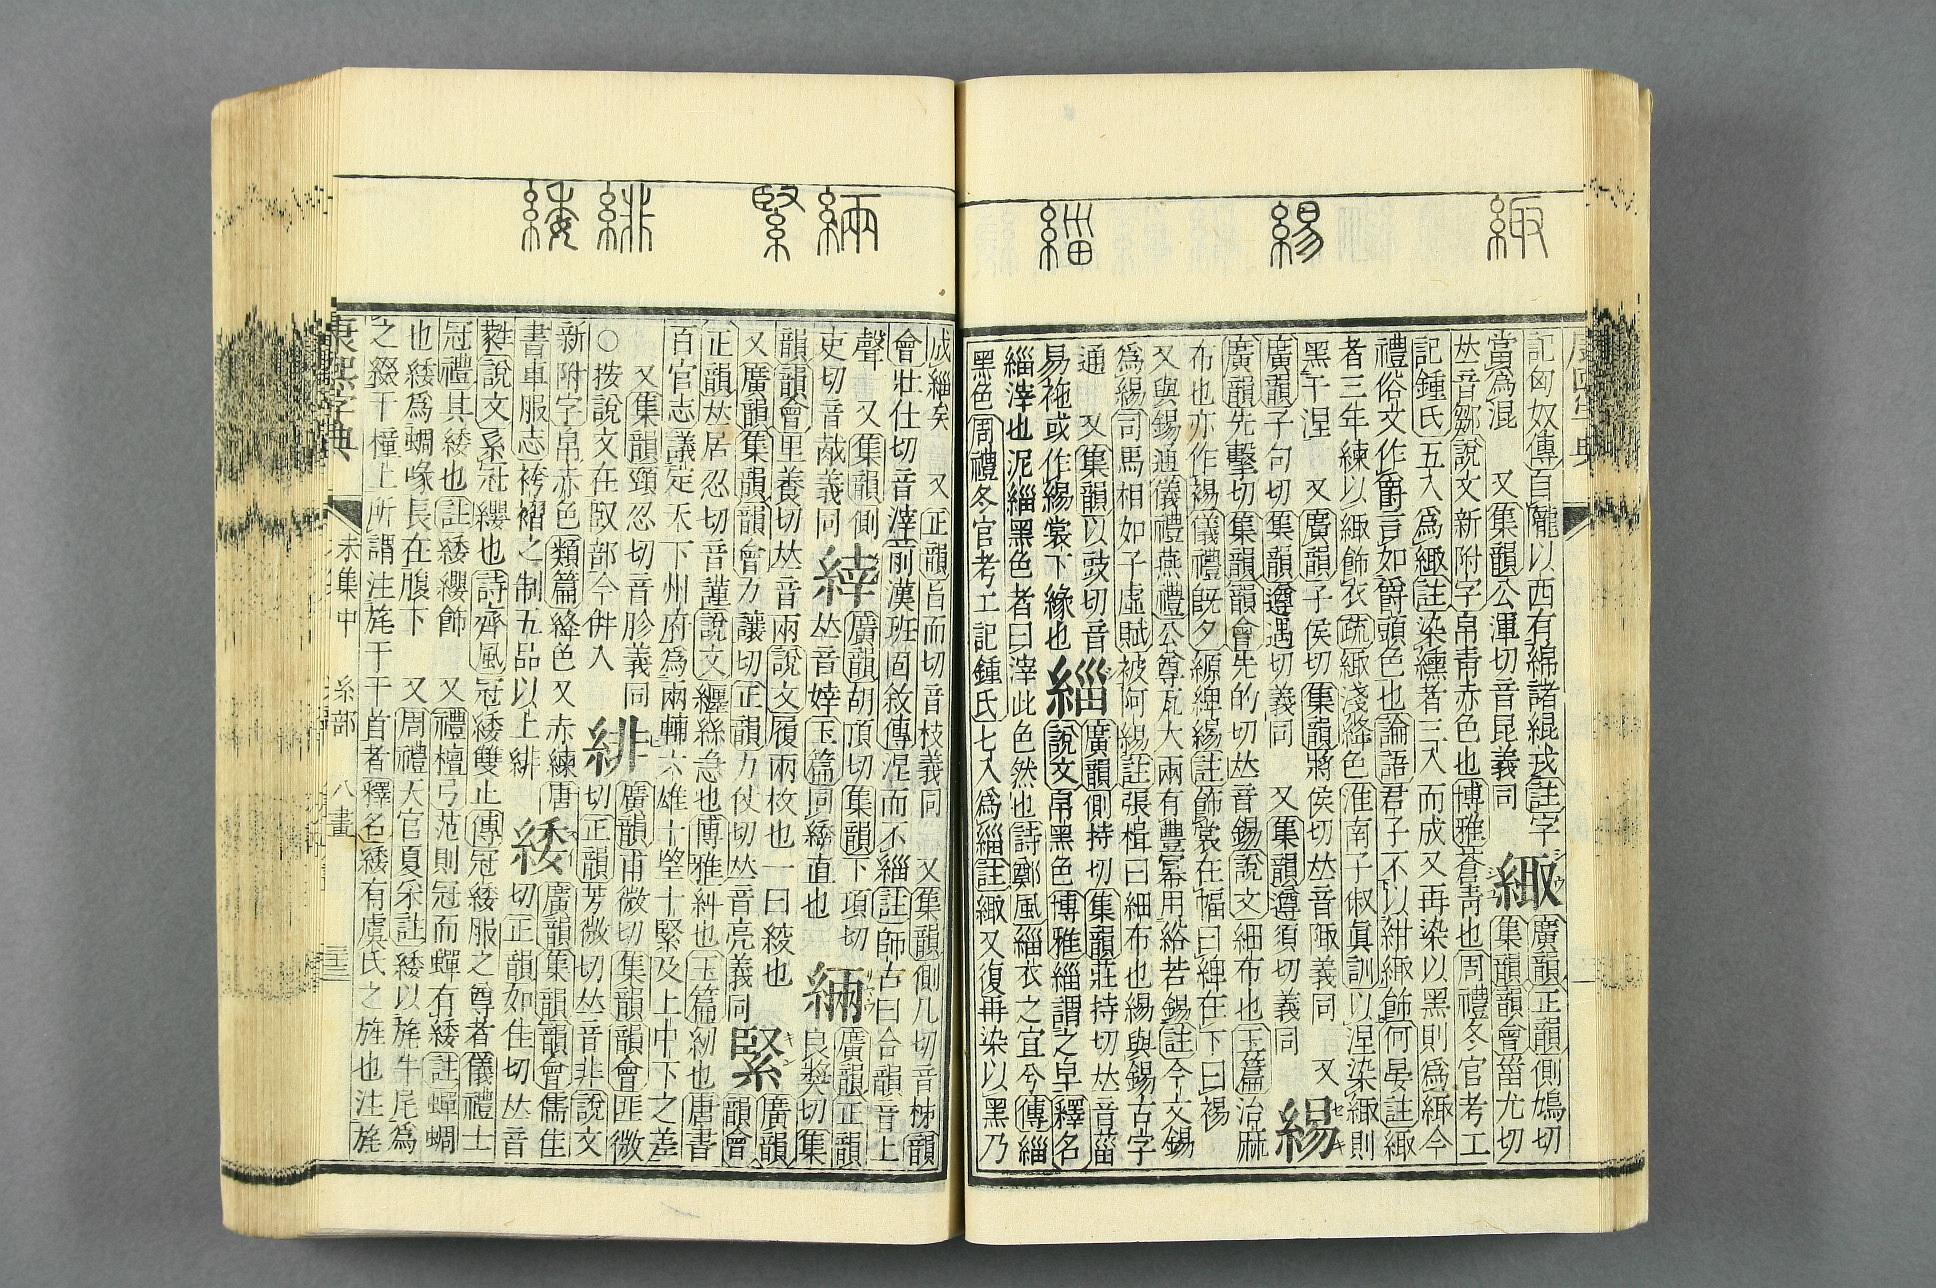 緅
緆
緇
記匈奴傳自隴以西有綿諸緄戎註字
當爲混 又集韻公渾切音昆義同
緅廣韻正韻側鳩切
集韻韻會甾尤切
𠀤音鄒說文新附字帛靑赤色也博雅蒼靑也周禮冬官考工
記鍾氏五入爲緅註染纁者三入而成又再染以黑則爲緅今
禮俗文作爵言如爵頭色也論語君子不以紺緅飾何晏註緅
者三年練以緅飾衣疏緅淺絳色淮南子俶眞訓以涅染緅則
黑于涅 又廣韻子侯切集韻將侯切𠀤音陬義同 又
廣韻子句切集韻遵遇切義同 又集韻遵須切義同
緆セキ
廣韻先擊切集韻韻會先的切𠀤音錫說文細布也玉篇治麻
布也亦作裼儀禮旣夕縓綼緆註飾裳在幅曰綼在下曰裼
又與錫通儀禮燕禮公尊瓦大兩有豐冪用綌若錫註今文錫
爲緆司馬相如子虛賦被阿緆註張楫曰細布也緆與錫古字
通 又集韻以豉切音
易袘或作緆裳下緣也
緇廣韻側持切集韻莊持切𠀤音菑
說文帛黑色博雅緇謂之皁釋名
緇滓也泥緇黑色者曰滓此色然也詩鄭風緇衣之宜兮傳緇
黑色周禮冬官考工記鍾氏七入爲緇註緅又復再染以黑乃
緉
緊
緋
緌
成緇矣 又正韻旨而切音枝義同 又集韻側几切音柹韻
會壯仕切音滓前漢班固敘傳涅而不緇註師古曰合韻音上
聲 又集韻側
吏切音胾義同
緈廣韻胡頂切集韻下項切
𠀤音婞玉篇同絳直也
緉リヤウ廣韻正韻
良奬切集
韻韻會里養切𠀤音兩說文履兩枚也一曰絞也
又廣韻集韻韻會力讓切正韻力仗切𠀤音亮義同
緊キン廣韻
韻會
正韻𠀤居忍切音謹說文纏絲急也博雅糾也玉篇紉也唐書
百官志議定天下州府爲兩輔六雄十望十緊及上中下之差
又集韻頸忍切音胗義同
○按說文在臤部今倂入
緋ヒ廣韻甫微切集韻韻會匪微
切正韻芳微切𠀤音非說文
新附字帛赤色類篇絳色又赤練唐
書車服志袴褶之制五品以上緋
緌廣韻集韻韻會儒隹
切正韻如佳切𠀤音
蕤說文系冠纓也詩齊風冠緌雙止傳冠緌服之尊者儀禮士
冠禮其緌也註緌纓飾 又禮檀弓范則冠而蟬有緌註蟬蜩
也緌爲蜩喙長在腹下 又周禮天官夏采註緌以旄牛尾爲
之綴于橦上所謂注旄于干首者釋名緌有虞氏之旌也注旄
康熙字典 未集中 糸部 八畫